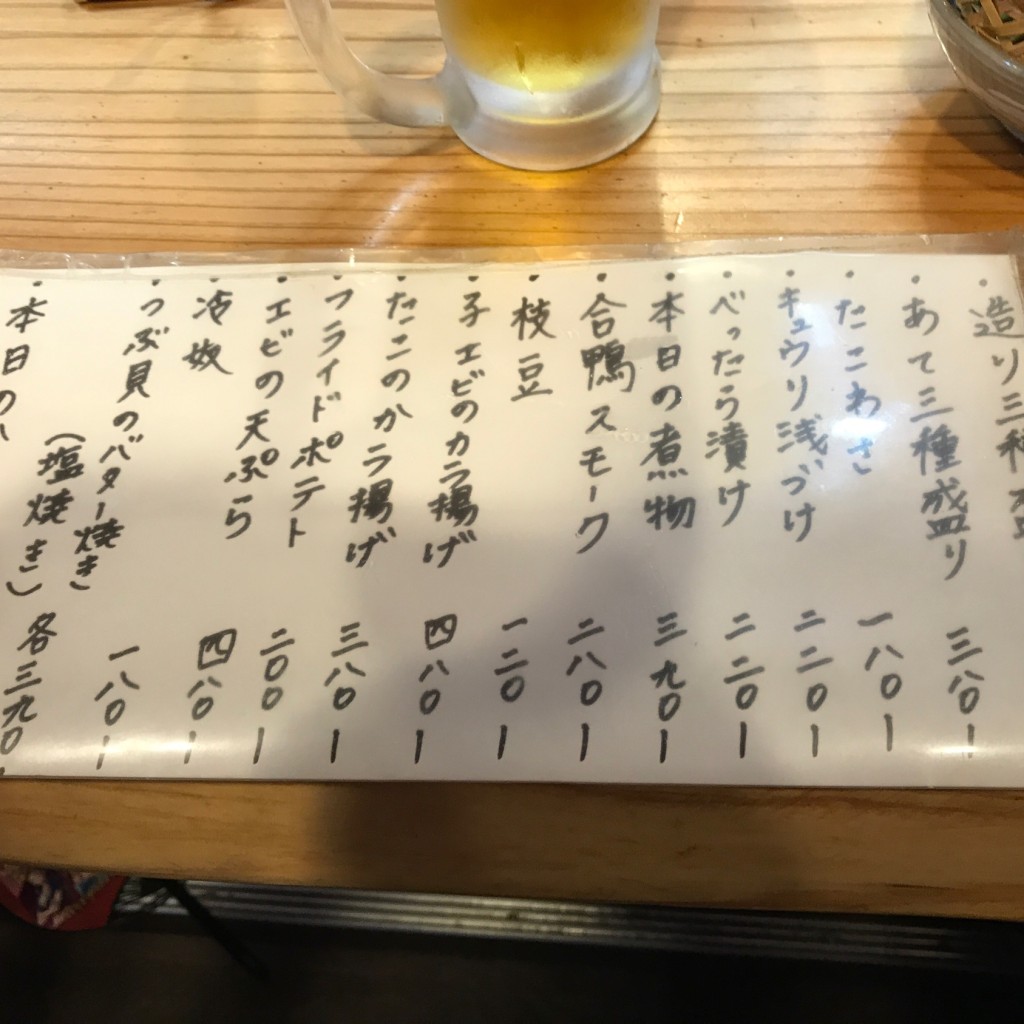 ・造り三種盛
・あて三種盛り 三八〇ー
・たこわさ 一八〇ー
・キュウリ浅づけ 二二〇ー
・べったら漬け 二二〇ー
・本日の煮物 三九〇ー
・合鴨スモーク 二八〇ー
・枝豆 一二〇ー
・子エビのカラ揚げ 四八〇ー
・たこのカラ揚げ 三八〇ー
・フライドポテト 二〇〇ー
・エビの天ぷら 四八〇ー
・冷奴 一八〇ー
・つぶ貝のバター焼き
(塩焼き) 各三九〇
・本日の